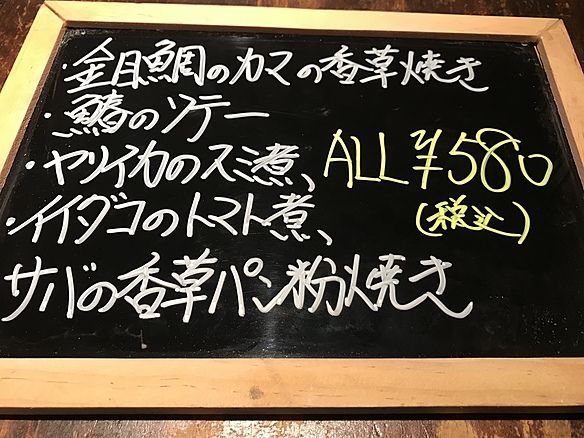 ・金目鯛のカマの香草焼き
・鰆のソテー
・ヤリイカのスミ煮、
・イイダコのトマト煮、
サバの香草パン粉焼き
ALL ¥580
(税込)